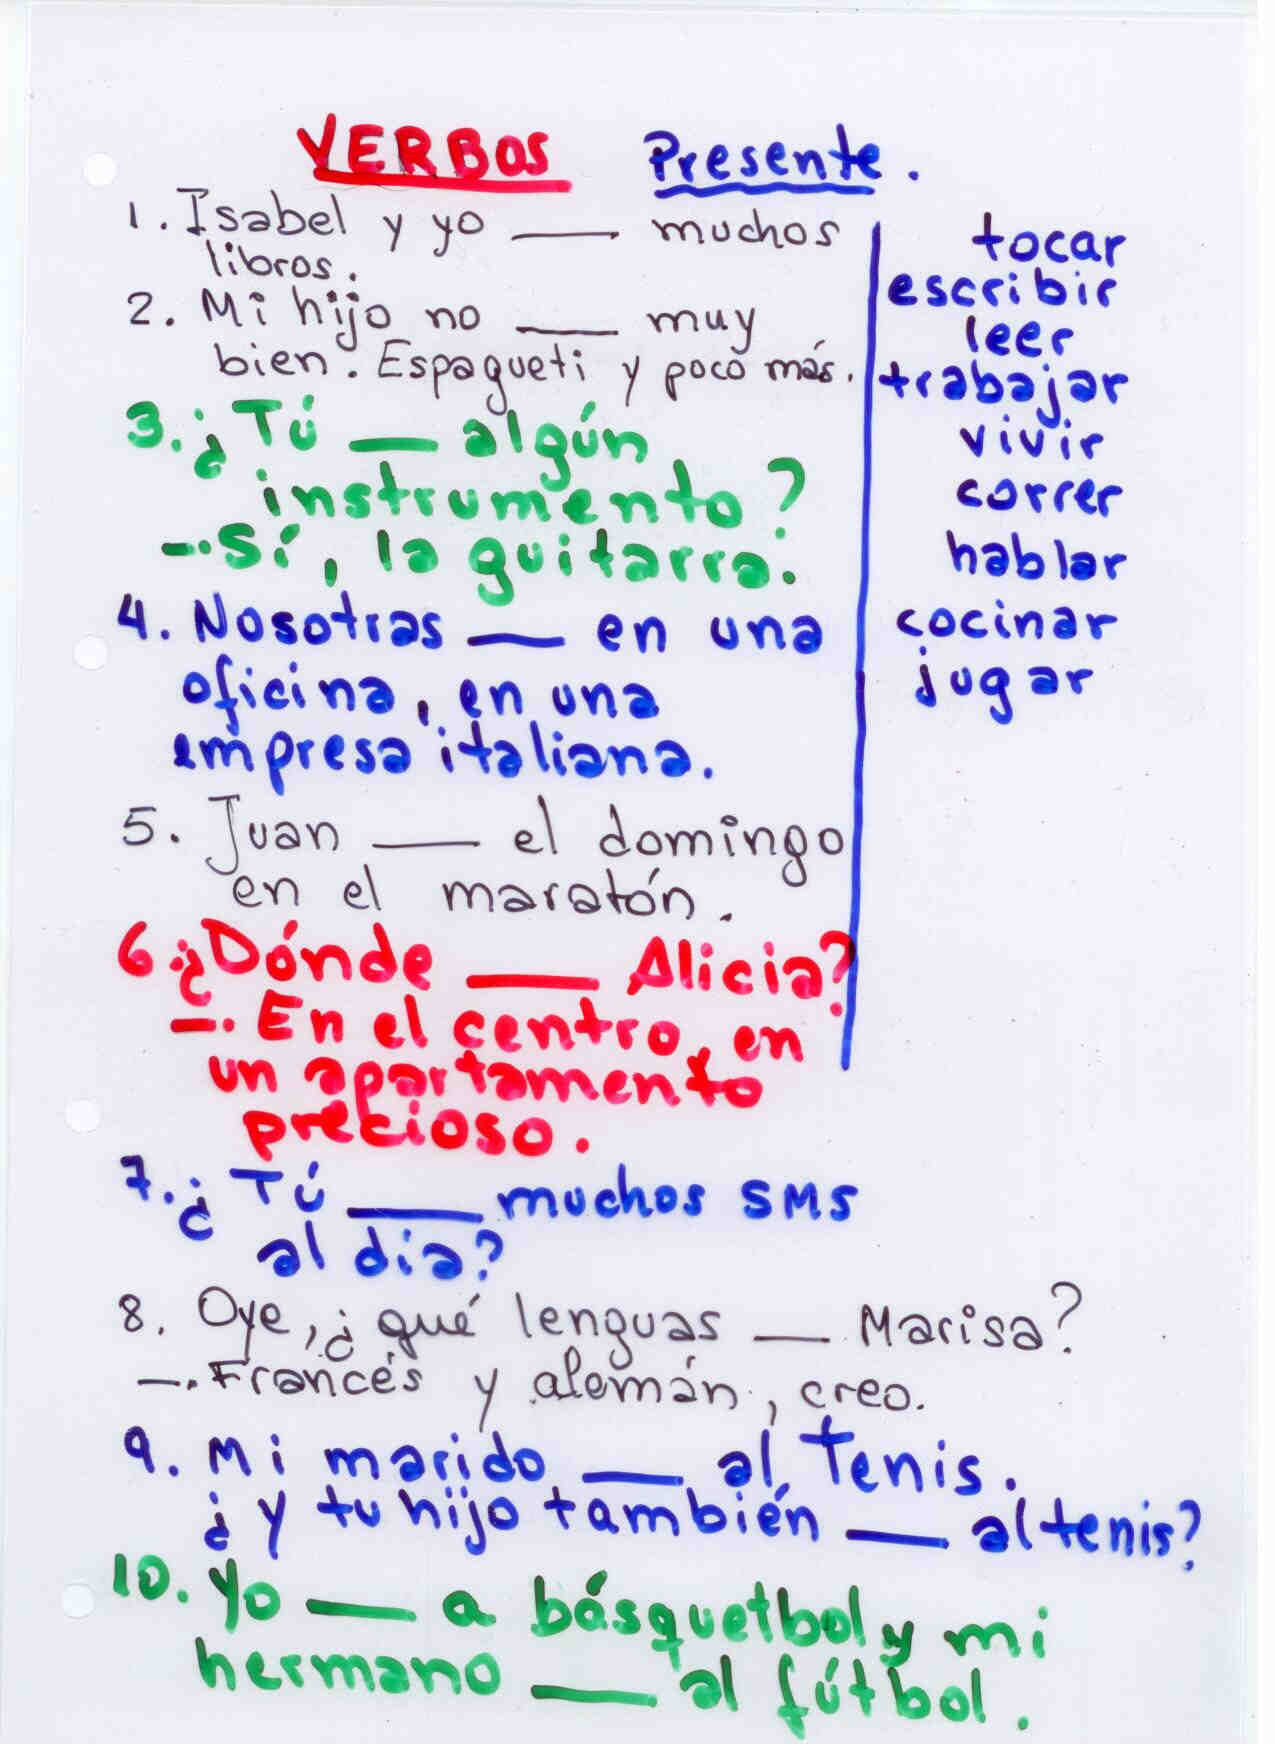 VERBOS Presente.
1. Isabel y yo ____ muchos
libros.
2. Mi hijo no ____ muy
bien. Espagueti y poco más.
3. ¿Tú ____ algún
instrumento?
-. Sí, la guitarra.
4. Nosotras ____ en una
oficina, en una
empresa italiana.
5. Juan ____ el domingo
en el maratón.
6. ¿Dónde ____ Alicia?
-. En el centro, en
un apartamento
precioso.
7. ¿Tú ____ muchos SMS
al día?
8. Oye, ¿qué lenguas ____ Marisa?
-. Francés y alemán, creo.
9. Mi marido ____ al Tenis.
¿Y tu hijo también ____ al tenis?
10. Yo ____ a básquetbol y mi
hermano ____ al fútbol.
tocar
escribir
leer
trabajar
vivir
correr
hablar
cocinar
jugar